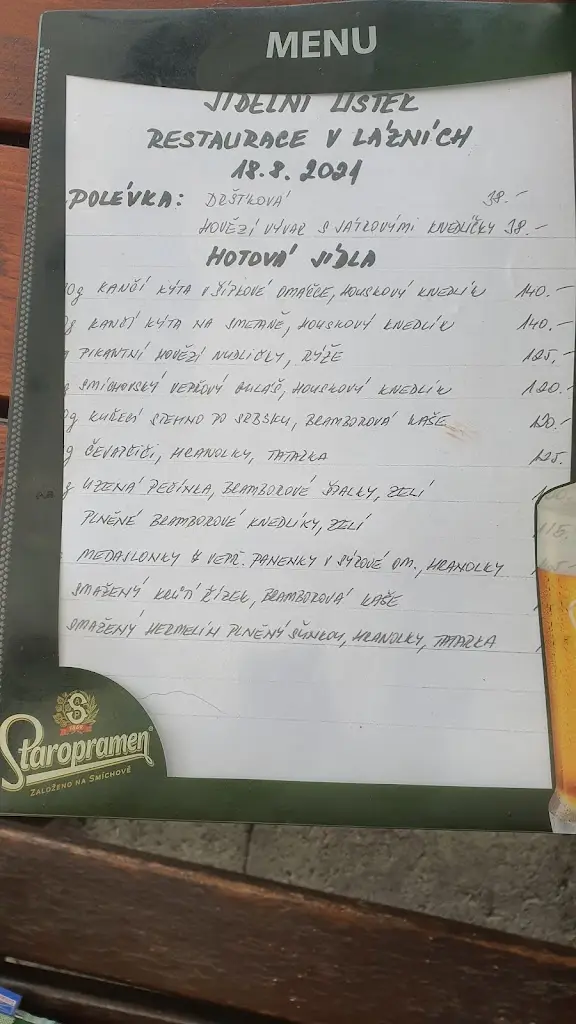 MENU
JÍDELNÍ LÍSTEK
RESTAURACE V LÁZNÍCH
18.8.2021
POLÉVKA: DRŠŤKOVÁ 38.-
HOVĚZÍ VÝVAR S JÁTROVÝMI KNEDLÍČKY 38.-
HOTOVÁ JÍDLA
0g KANČÍ KÝTA V ŠÍPKOVÉ OMÁČCE, HOUSKOVÝ KNEDLÍK 140.-
g KANČÍ KÝTA NA SMETANĚ, HOUSKOVÝ KNEDLÍK 140.-
PIKANTNÍ HOVĚZÍ NUDLIČKY, RÝŽE 125.-
g SMÍCHOVSKÝ VEPŘOVÝ GULÁŠ, HOUSKOVÝ KNEDLÍK 120.-
0g KUŘECÍ STEHNO PO SRBSKU, BRAMBOROVÁ KAŠE 120.-
g ČEVAPČIČI, HRANOLKY, TATARKA 125.
g UZENÁ PEČÍNKA, BRAMBOROVÉ ŠPALKY, ZELÍ
PLNĚNÉ BRAMBOROVÉ KNEDLÍKY, ZELÍ 115.
MEDAJLONKY Z VEPŘ. PANENKY V SÝROVÉ OM., HRANOLKY
SMAŽENÝ KRŮTÍ ŘÍZEK, BRAMBOROVÁ KAŠE
SMAŽENÝ HERMELÍN PLNĚNÝ ŠUNKOU, HRANOLKY, TATARKA
S
1869
Staropramen
ZALOŽENO NA SMÍCHOVĚ